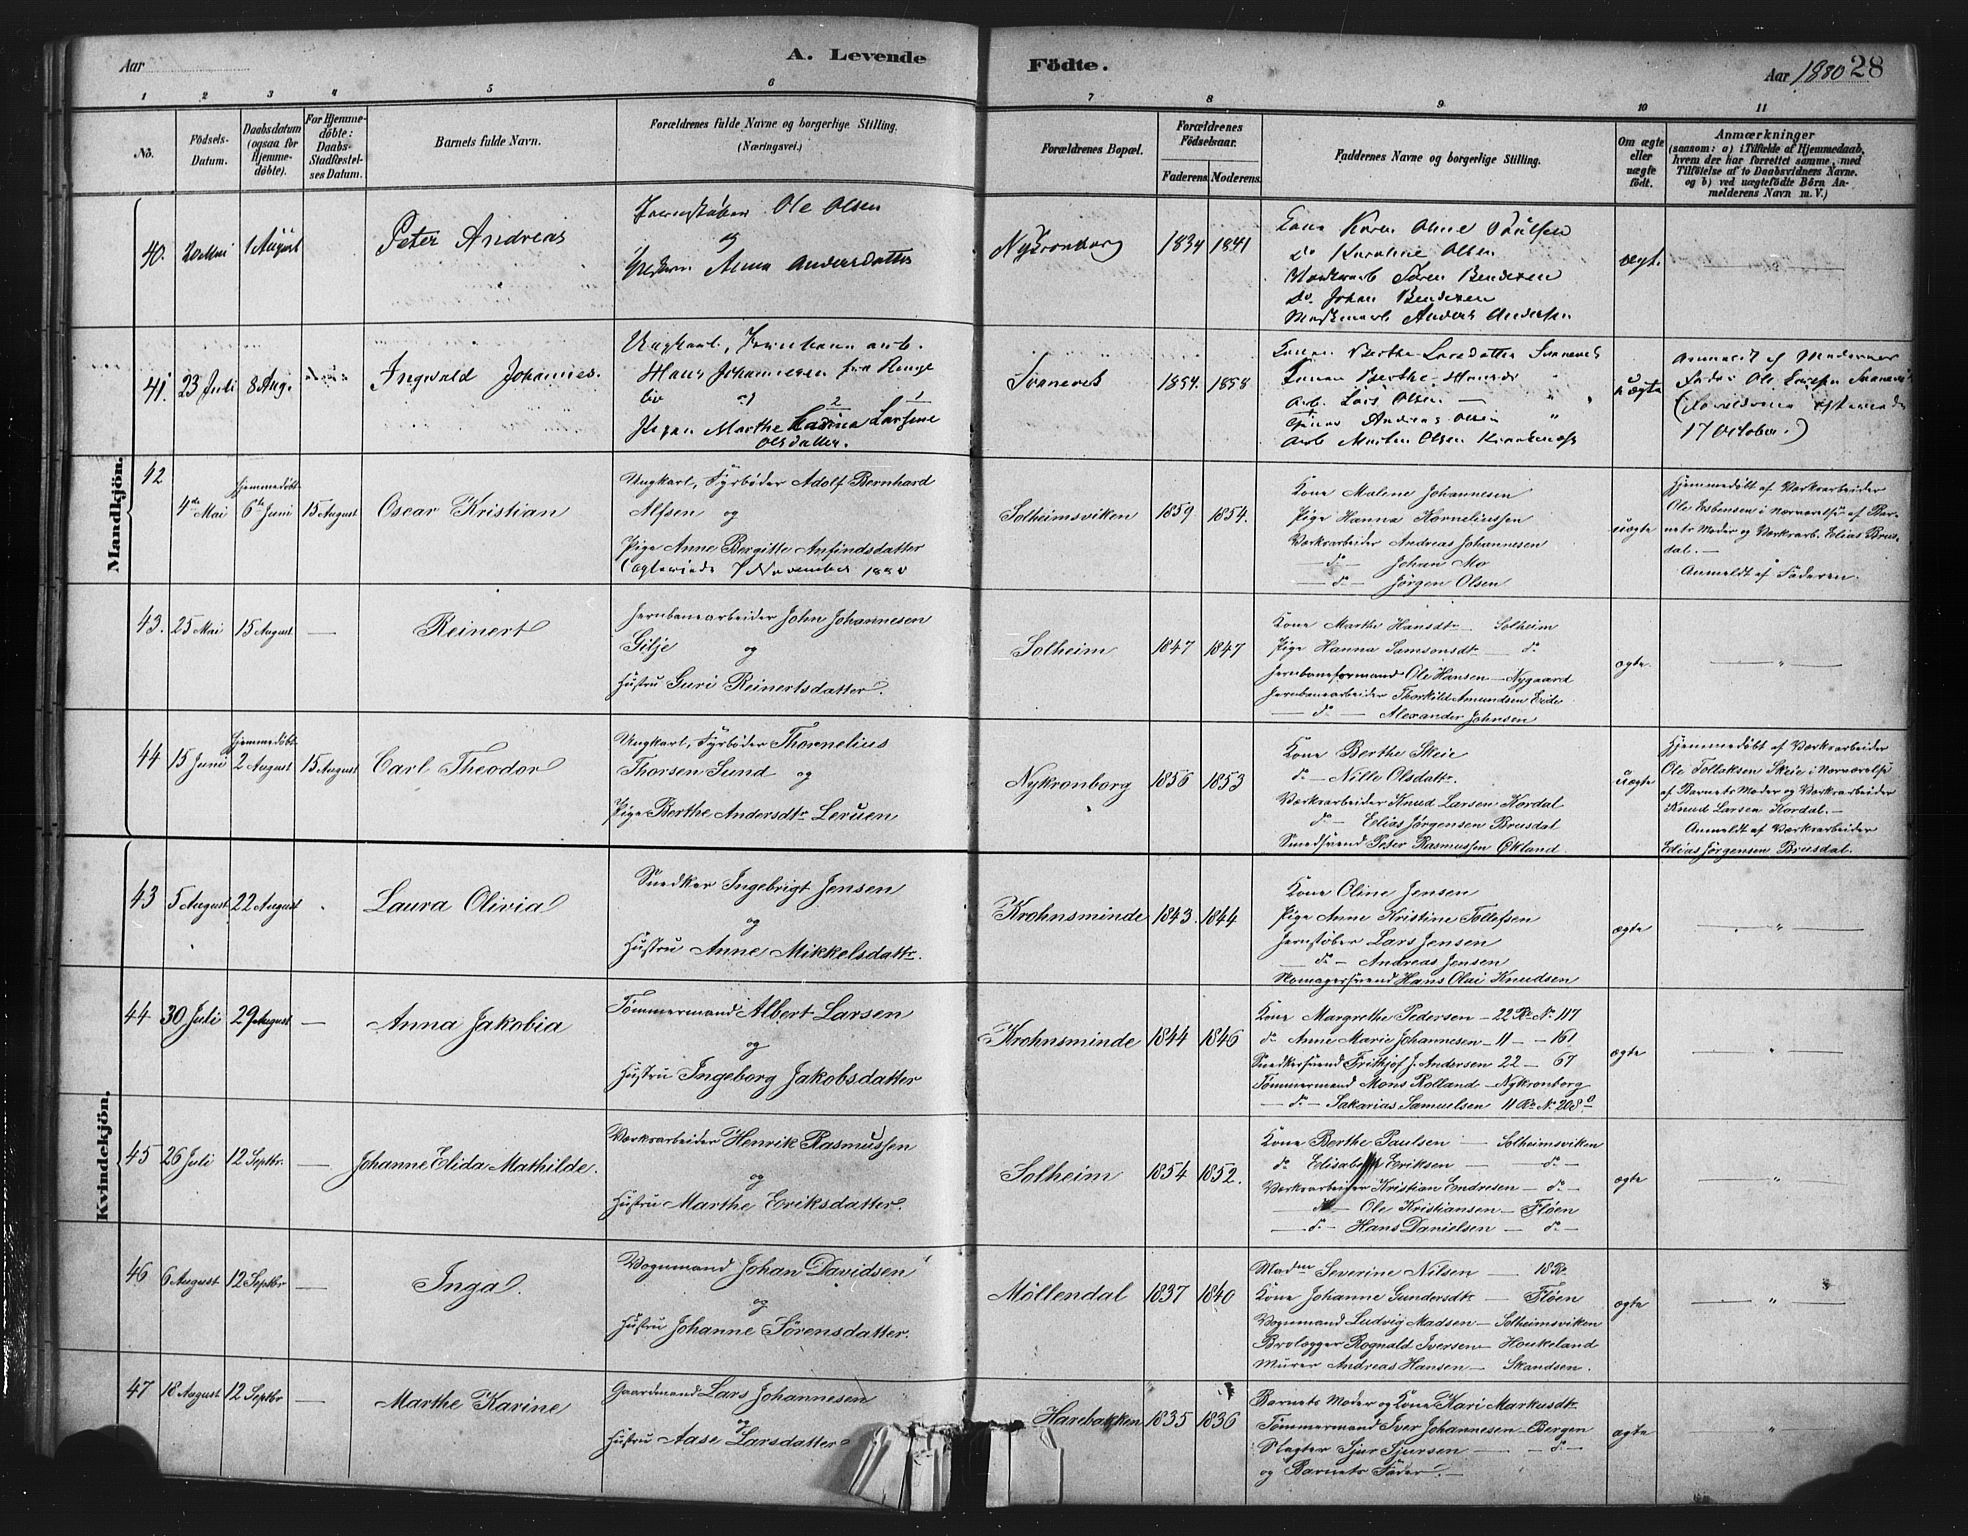 Aar
A. Levende Födte.
Aar 1880 28
1 2 3 4 5 6 7 8 9 10 11
No.
Födsels-Datum.
Daabsdatum (ogsaa for Hjemmedöbte).
For Hjemmedøbte: Daabs-Stadfæstelses Datum.
Barnets fulde Navn.
Forældrenes fulde Navne og borgerlige Stilling. (Næringsvei.)
Forældrenes Bopæl.
Forældrenes Födselsaar.
Faderens. Moderens.
Faddernes Navne og borgerlige Stilling.
Om ægte eller uægte födt.
Anmærkninger
(saasom: a) i Tilfælde af Hjemmedaab, hvem der har forrettet samme, med Tilföielse af to Daabsvidners Navne. og b) ved uægtefödte Börn Anmelderens Navn m. V.)
Mandkjön.
40. 20 Mai 1 August
Peter Andreas
Jernstøber Ole Olsen
og
Anna Andersdatter
Nykronborg 1834 1841
Kone Karen Oline Paulsen
do Karoline Olsen
Søren Bendixen
do. Johan Bendixen
Anders Andersen
ægt.
41. 23 Juli 8 Aug.
Ingvald Johannes.
Ungkarl, Jernbane arb.
Hans Johannesen fra
og
Pigen Marthe Larsine
Olsdatter.
1854. 1858
Konen Berthe Larsdatter
Konen Berthe
Arb. Lars Olsen
Andreas Olsen
Arb Morten Olsen
uægte
Anmeldt af Moderens
Fader Ole
17 October.)
42 4de Mai Hjemmedøbt 6te Juni 15 August
Oscar Kristian
Ungkarl, Fyrbøder Adolf Bernhard
Alfsen og
Pige Anne Bergitte Anfindsdatter
7 November 1880
Solheimsviken 1859 1854.
Kone Malene Johannesen
Pige Hanna Korneliussen
Værksarbeider Andreas Johannesen
— do — Johan Mo
— do — Jørgen Olsen
uægte
Hjemmedøbt af Værksarbeider
Ole Esbensen i Nærværelse af Bar-
nets Moder og Værksarb. Elias Brus-
dal. —
Anmeldt af Faderen.
43. 25 Mai 15 August —
Reinert
Jernbanearbeider John Johannesen
Gilje og
Hustru Guri Reinertsdatter.
Solheim 1847 1847
Kone Marthe Hansdtr — Solheim
Pige Hanna Samsonsdtr — do
Jernbaneformand Ole Hansen — Nygaard
Jernbanearbeider Thorkild Amundsen Eide
— do — Alexander Johnsen
ægte. — " —
44 15 Juni Hjemmedøbt 2 August 15 August
Carl Theodor
Ungkarl, Fyrbøder Thornelius
Thorsen Sund og
Pige Berthe Andersdtr Leruen
Nykronborg 1856 1853
Kone Berthe Skeie
do — Nille Olsdatr.
Værksarbeider Knud Larsen Kordal
do — Elias Jørgensen Brusdal
Smedsvend Peter Rasmussen Økland.
uægte
Hjemmedøbt af Værksarbeider
Ole Tollaksen Skeie i Nærværelse
af Barnets Moder og Værksarbeider
Knud Larsen Kordal. —
Anmeldt af Værksarbeider
Elias Jørgensen Brusdal.
Kvindekjön.
43 5 August 22 August
Laura Olivia
Snedker Ingebrigt Jensen
og
Hustru Anne Mikkelsdatr.
Krohnsminde 1843. 1844
Kone Oline Jensen
Pige Anne Kristine Tollefsen
Jernstøber Lars Jensen
— do — Andreas Jensen
Hans Olai Knudsen
ægte — " —
44 30 Juli 29 August —
Anna Jakobia
Tømmermand Albert Larsen
og
Hustru Ingeborg Jakobsdatter
Krohnsminde 1844 1846
Kone Margrethe Pedersen — 22 Ro No 117
do Anne Marie Johannesen — 11 — — 161
Snedkersvend Frithjof J. Andersen 22 — 67
Tømmermand Mons Rolland — Nykronborg
— do — Sakarias Samuelsen 11 Ro No 208
ægte — " —
45 26 Juli 12 Septbr. —
Johanne Elida Mathilde.
Værksarbeider Henrik Rasmussen
og
Hustru Marthe Eriksdatter.
Solheim 1854 1852.
Kone Berthe Paulsen — Solheimsviken
do Elisabeth Eriksen — do —
Værksarbeider Kristian Endresen — do —
— do — Ole Kristiansen — Fløen
— do — Hans Danielsen — do —
ægte "
46 6 August 12 Septbr —
Inga.
Vognmand Johan Davidsen
og
Hustru Johanne Sørensdatter.
Möllendal 1837 1840
Madm Severine Nilsen — 18 Ro
Kone Johanne Gundersdtr — Fløen
Vognmand Ludvig Madsen — Solheimsviken
Brolægger Rognald Iversen — Houkeland
Murer Andreas Hansen — Skandsen.
ægte — " —
47 18 August 12 Septbr —
Marthe Karine
Gaardmand Lars Johannesen
og
Hustru Aase Larsdatter
Harebakken 1835 1836
Barnets Moder og Kone Kari Markusdtr.
Tømmermand Iver Johannesen — Bergen
Slagter Sjur Sjursen — do —
og Barnets Fader. —
ægte — " —